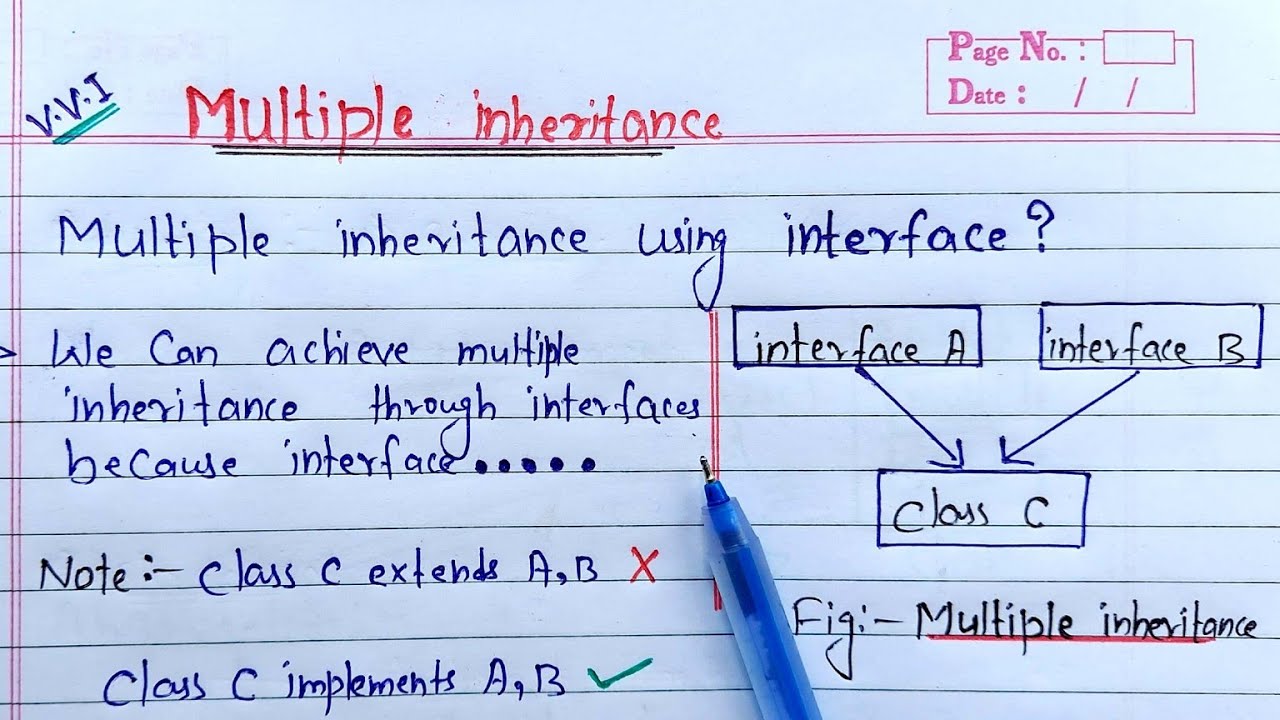 Page No. :
Date : / /
V.V.I
Multiple inheritance
Multiple inheritance using interface?
We Can achieve multiple
inheritance through interfaces
because interface.....
Note:- Class C extends A,B X
Class C implements A,B ✓
interface A
interface B
Class C
Fig:- Multiple inheritance